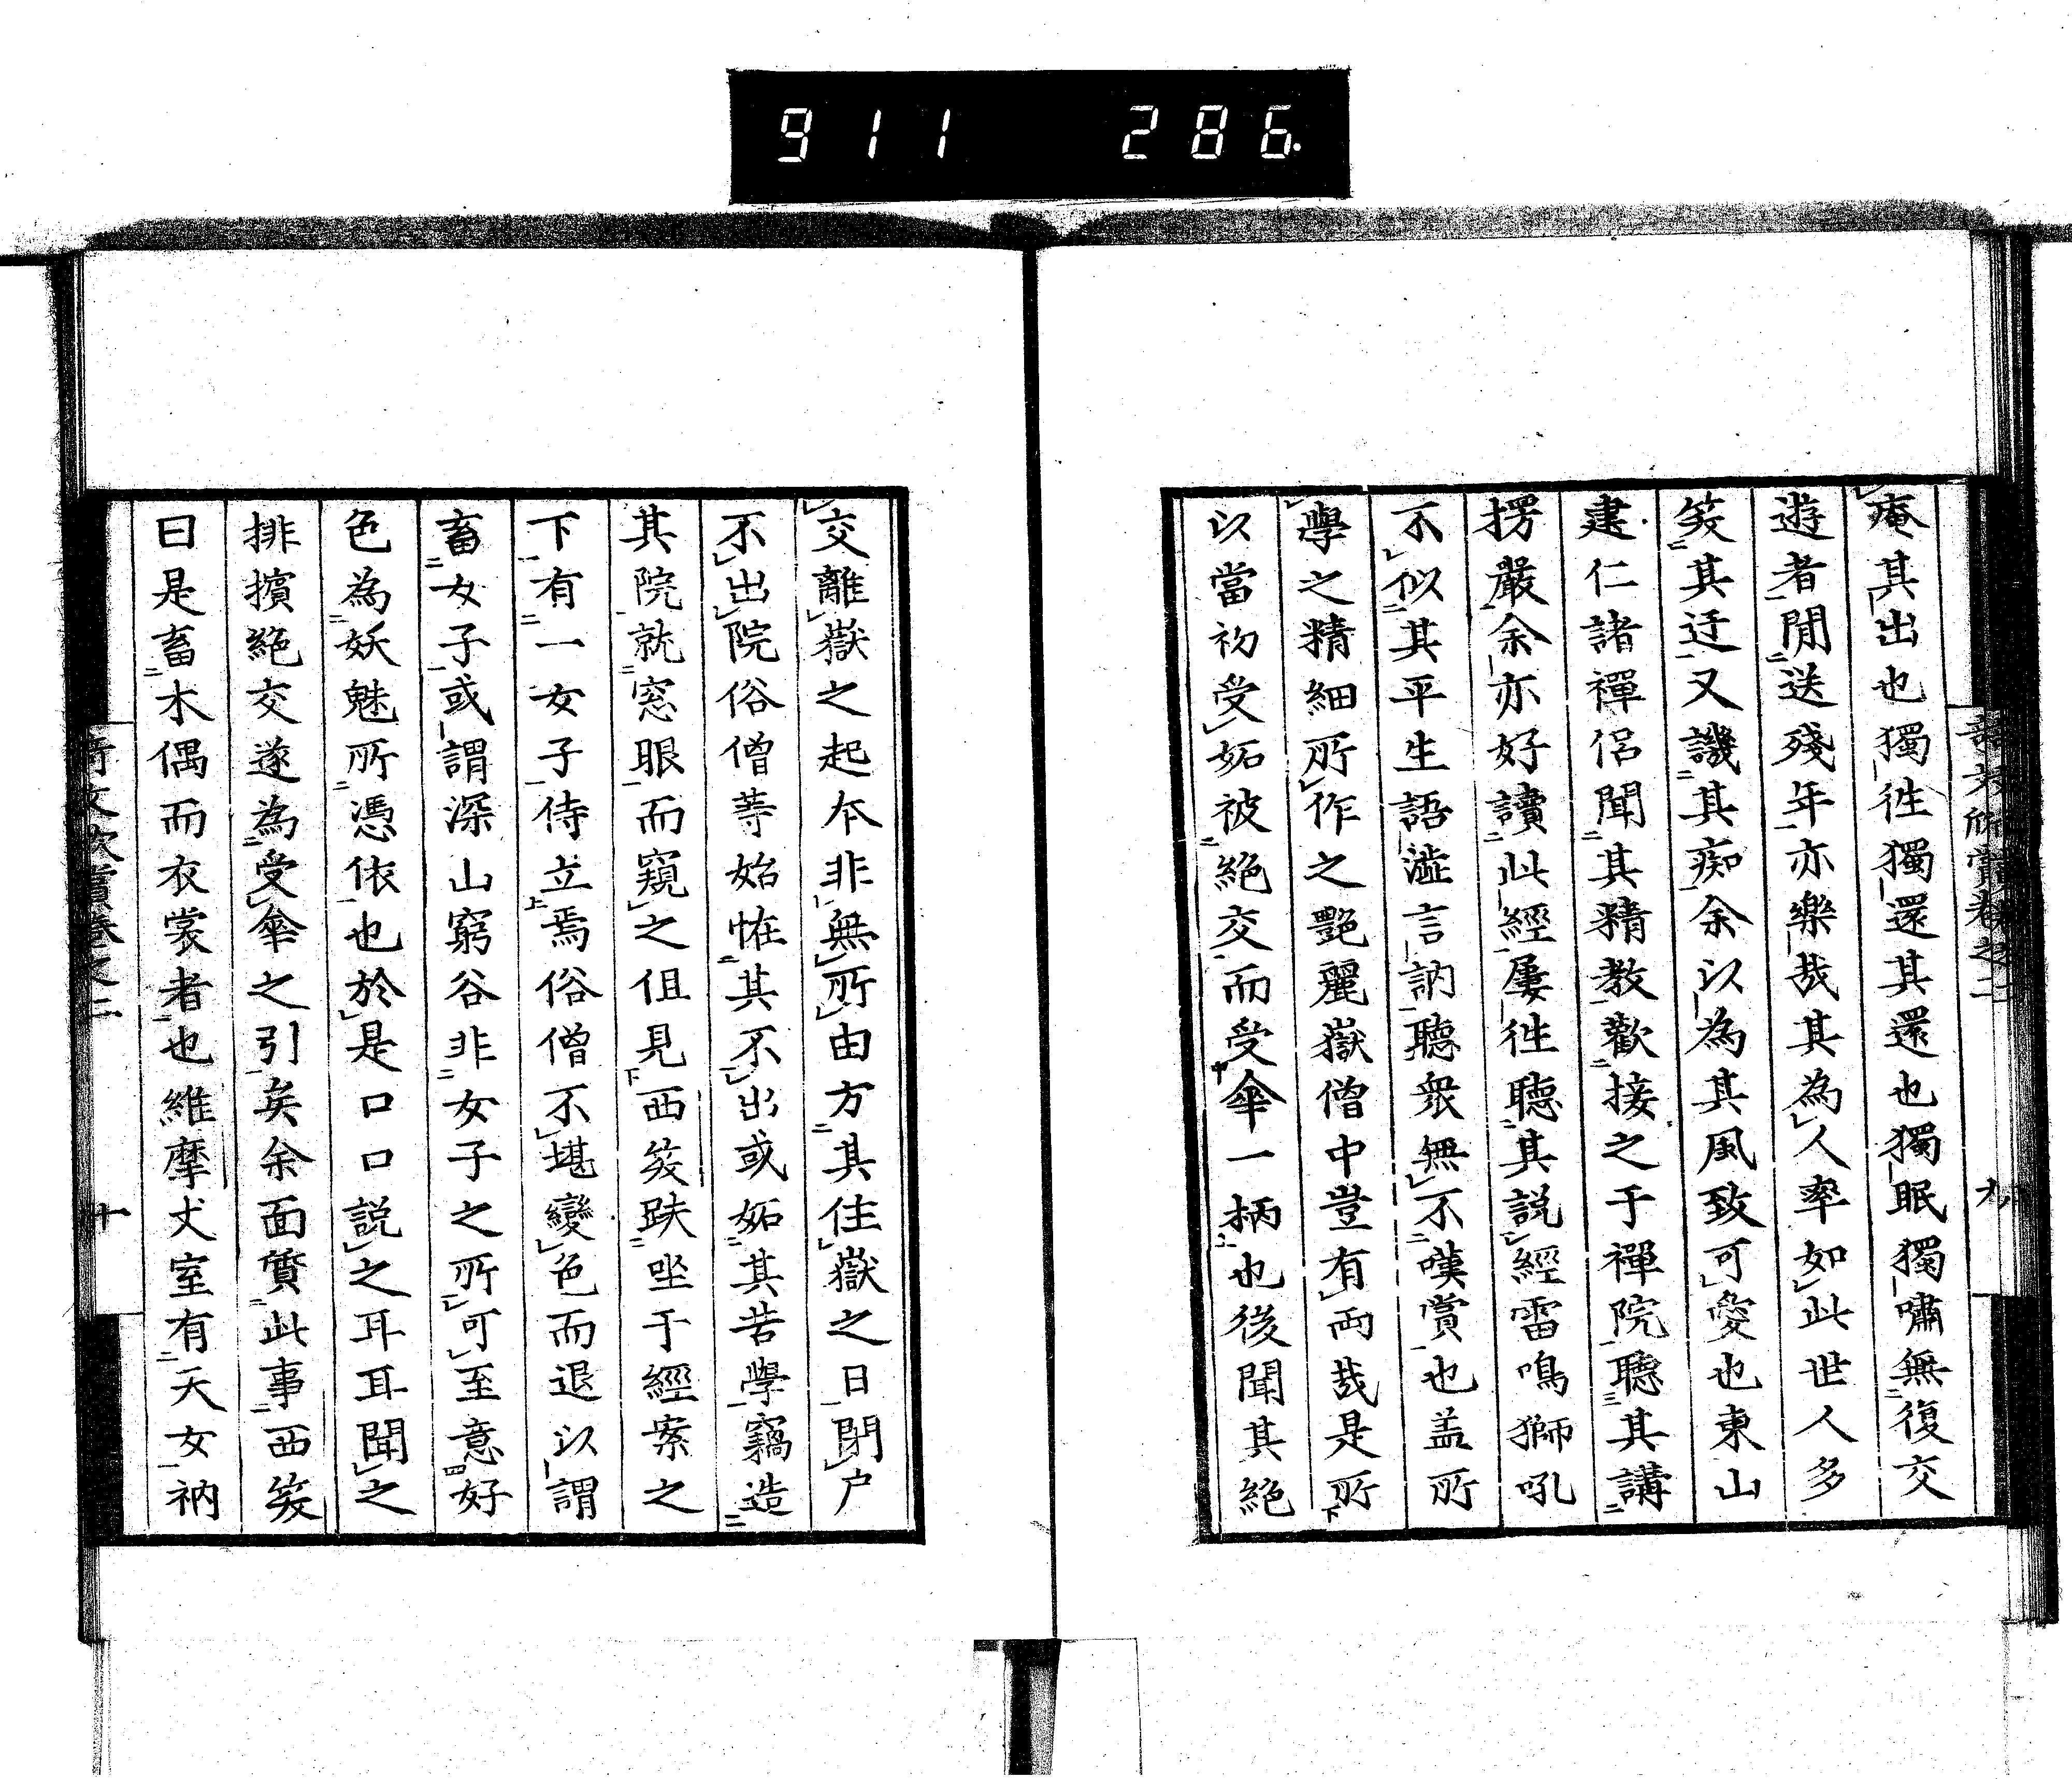 911 286.
庵其出也獨徃獨還其還也獨眠獨嘯無復交
遊者閒送殘年亦樂哉其為人率如此世人多
笑其迂又譏其痴余以為其風致可愛也東山
建仁諸禪侶聞其精教歡接之于禪院聽其講
楞嚴余亦好讀此經屢徃聽其説經雷鳴獅吼
不似其平生語澁言訥聽衆無不嘆賞也盖所
學之精細所作之艷麗嶽僧中豈有両哉是所
以當初受妬被絶交而受傘一柄也後聞其絶
九
交離嶽之起夲非無所由方其住嶽之日閉户
不出院俗僧等始恠其不出或妬其苦學竊造
其院就窓眼而窺之但見西笑趺坐于經案之
下有一女子侍立焉俗僧不堪變色而退以謂
畜女子或謂深山窮谷非女子之所可至意好
色為妖魅所憑依也於是口口説之耳耳聞之
排擯絶交遂為受傘之引矣余面質此事西笑
曰是畜木偶而衣裳者也維摩丈室有天女衲
十